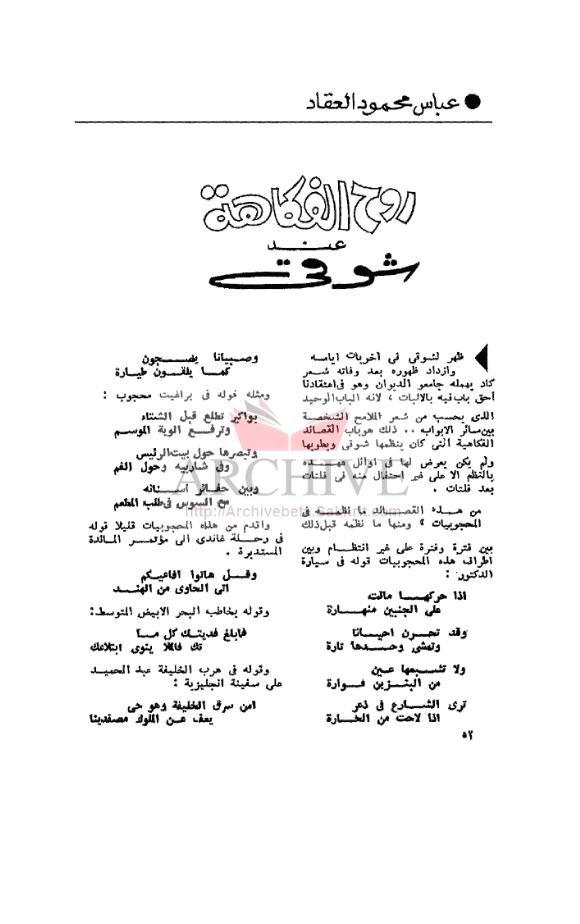 عباس محمود العقاد
روح الفكاهة
عند
شوقى
ظهر لشوقى فى اخريات ايامه
وازداد ظهوره بعد وفاته شعر
كاد يهمله جامعو الديوان وهو فى اعتقادنا
أحق باب فيه بالاثبات ، لانه الباب الوحيد
الذى يحسب من شعر الملامح الشخصية
بين سائر الابواب . . ذلك هو باب القصائد
الفكاهية التى كان ينظمها شوقى ويطويها
ولم يكن يعرض لها فى اوائل عهده
بالنظم الا على غير احتفال منه فى فلتات
بعد فلتات .
من هذه القصائد ما نظمه فى
المحجوبيات » ومنها ما نظمه قبل ذلك
بين فترة وفترة على غير انتظام وبين
اطراف هذه المحجوبيات قوله فى سيارة
الدكتور :
اذا حركتها مالت
على الجنبين منهارة
وقد تحرن احيانا
وتمشى وحدها تارة
ولا تشبعها عين
من البنزين فوارة
ترى الشارع فى ذعر
اذا لاحت من الحارة
وصبيانا يضجون
كما يلقون طيارة
ومثله قوله فى براغيث محجوب :
بواكير تطلع قبل الشتاء
وترفع الوية الموسم
وتبصرها حول بيت الرئيس
وفى شاربيه وحول الفم
وبين حفائر اسنانه
مع السوس فى طلب المطعم
واقدم من هذه المحجوبيات قليلا قوله
فى رحلة غاندى الى مؤتمر المائدة
المستديرة .
وقل هاتوا افاعيكم
اتى الحاوى من الهند
وقوله يخاطب البحر الابيض المتوسط:
فابلغ فديتك كل ما
ئك فالملا ينوى ابتلاعك
وقوله فى هرب الخليفة عبد الحميد
على سفينة انجليزية :
امن سرق الخليفة وهو حى
يعف عن الملوك مصفدينا
٥٢
ARCHIVE
http://Archivebeta.Sakhrit.com